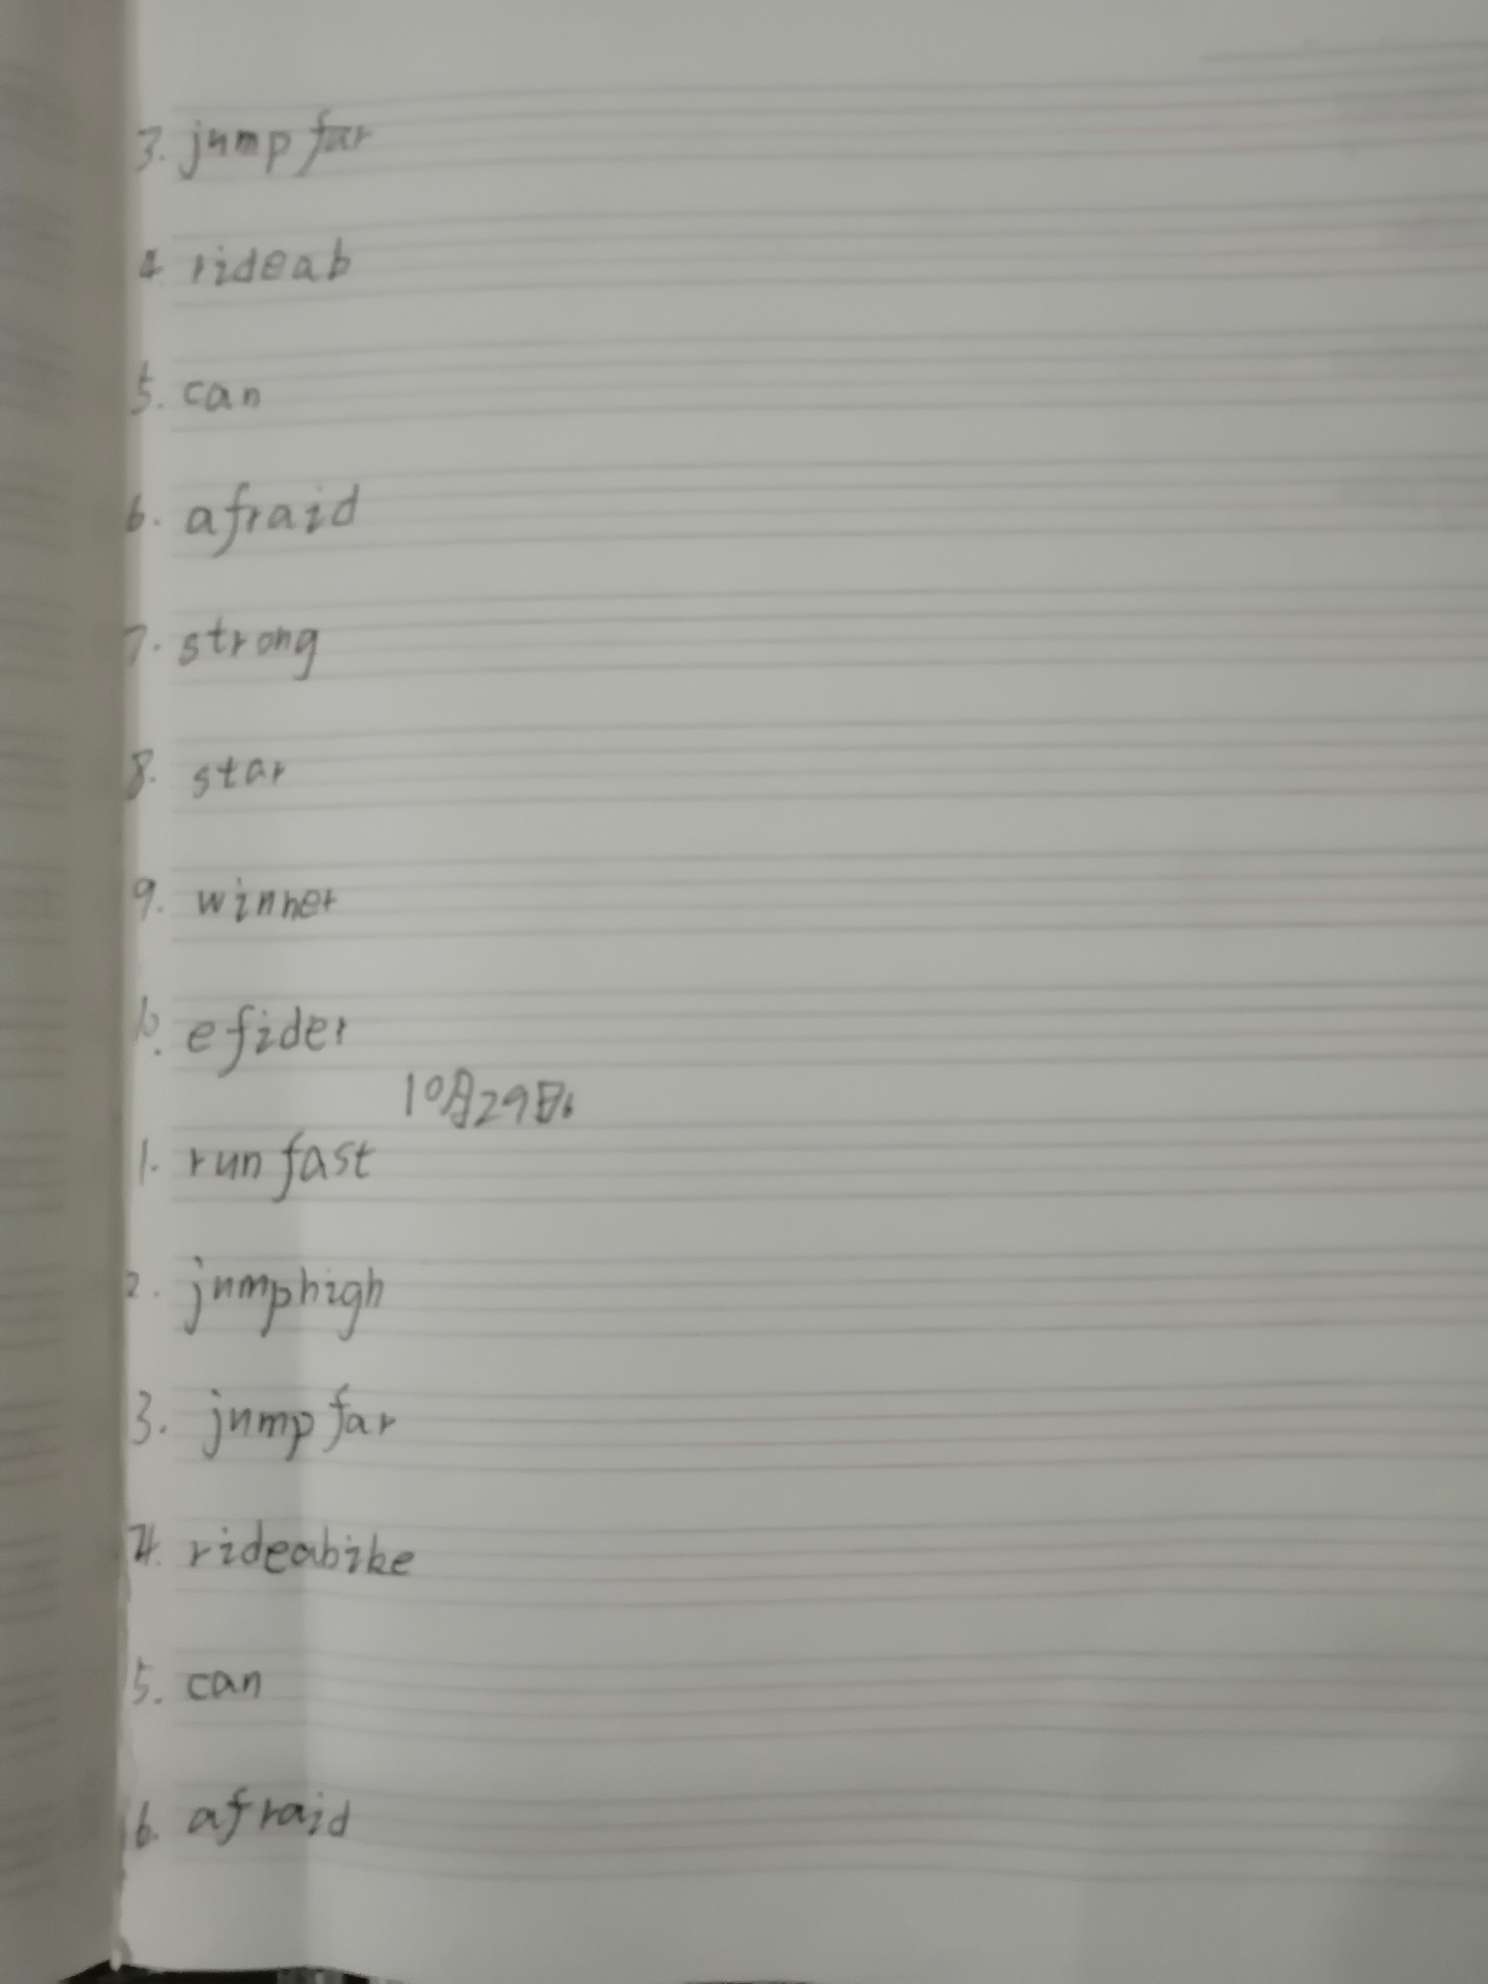 3. jump far
4. rideab
5. can
6. afraid
7. strong
8. star
9. winner
10. efider
10月29日
1. run fast
2. jumphigh
3. jump far
4. rideabike
5. can
6. afraid